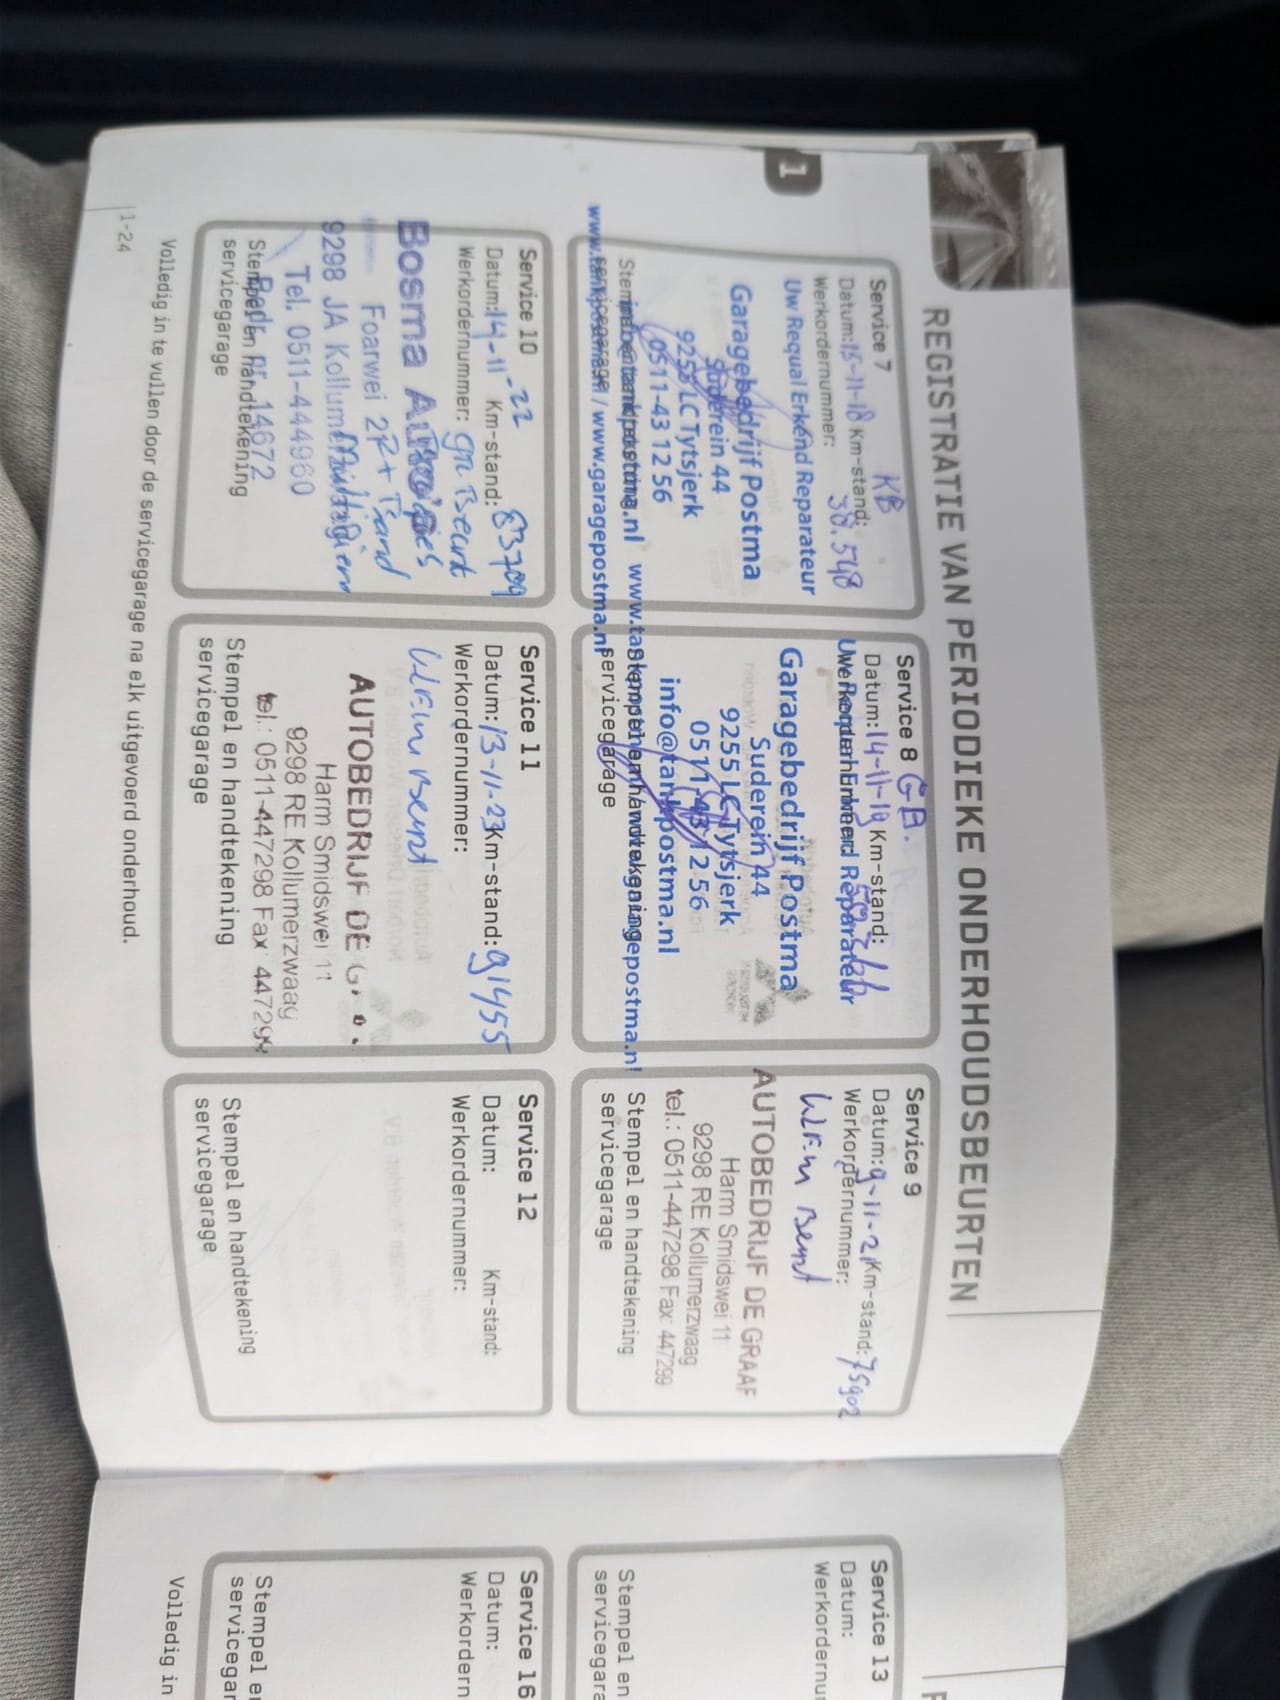 REGISTRATIE VAN PERIODIEKE ONDERHOUDSBEURTEN
1
Service 7 KB
Datum: 15-11-18 Km-stand: 38.548
Werkordernummer:
Uw Requal Erkend Reparateur
Garagebedrijf Postma
Suderein 44
9255 LC Tytsjerk
0511-43 12 56
www.garagepostma.nl
Stempel en handtekening
servicegarage
Service 8 G.B.
Datum: 14-11-19 Km-stand:
Werkordernummer:
Uw Requal Erkend Reparateur
Garagebedrijf Postma
Suderein 44
9255 LC Tytsjerk
0511-43 12 56
info@tankpostma.nl
Stempel en handtekening
servicegarage
Service 9
Datum: 9-11-21 Km-stand: 75902
Werkordernummer:
Klein Beurt
AUTOBEDRIJF DE GRAAF
Harm Smidswei 11
9298 RE Kollumerzwaag
tel.: 0511-447298 Fax: 447299
Stempel en handtekening
servicegarage
Service 10
Datum: 14-11-22 Km-stand: 83709
Werkordernummer: Gr. Beurt
Bosma
Foarwei 27
9298 JA Kollum
Tel. 0511-444960
14672
Stempel en handtekening
servicegarage
Service 11
Datum: 13-11-23 Km-stand: 91455
Werkordernummer:
Klein Beurt
AUTOBEDRIJF DE
Harm Smidswei 11
9298 RE Kollumerzwaag
tel.: 0511-447298 Fax: 447299
Stempel en handtekening
servicegarage
Service 12
Datum: Km-stand:
Werkordernummer:
Stempel en handtekening
servicegarage
Volledig in te vullen door de servicegarage na elk uitgevoerd onderhoud.
1-24
Service 13
Datum:
Werkordernu
Stempel en
servicegara
Service 16
Datum:
Werkordern
Stempel e
servicegar
Volledig in